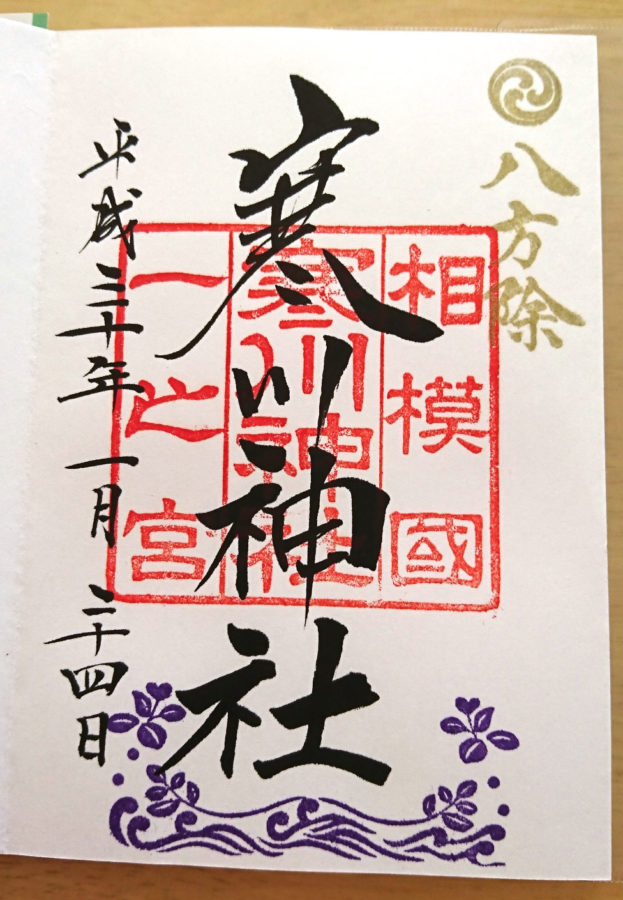 八方除
相模國
寒川神社
一之宮
寒川神社
平成三十年一月二十四日